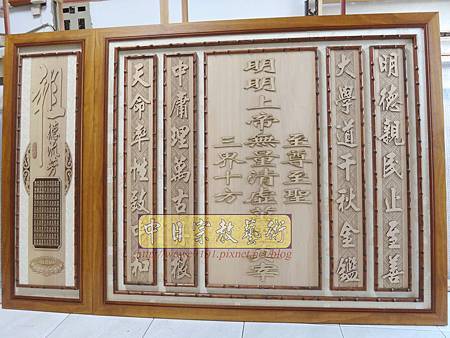 明德親民止至善
大學道千秋金鑑
至尊至聖
明明上帝無量清虛
宰
三界十方
中庸理萬古
天命率性致
和
祖德流芳
中日宗教藝術